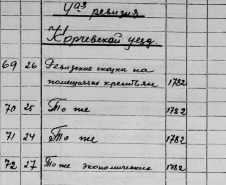 4ая ревизия
Корчевской уезд.
69 26 Ревизские сказки на
помещичьих крестьян 1782
70 25 То же 1782
71 24 То же 1782
72 27 То же экономические 1782